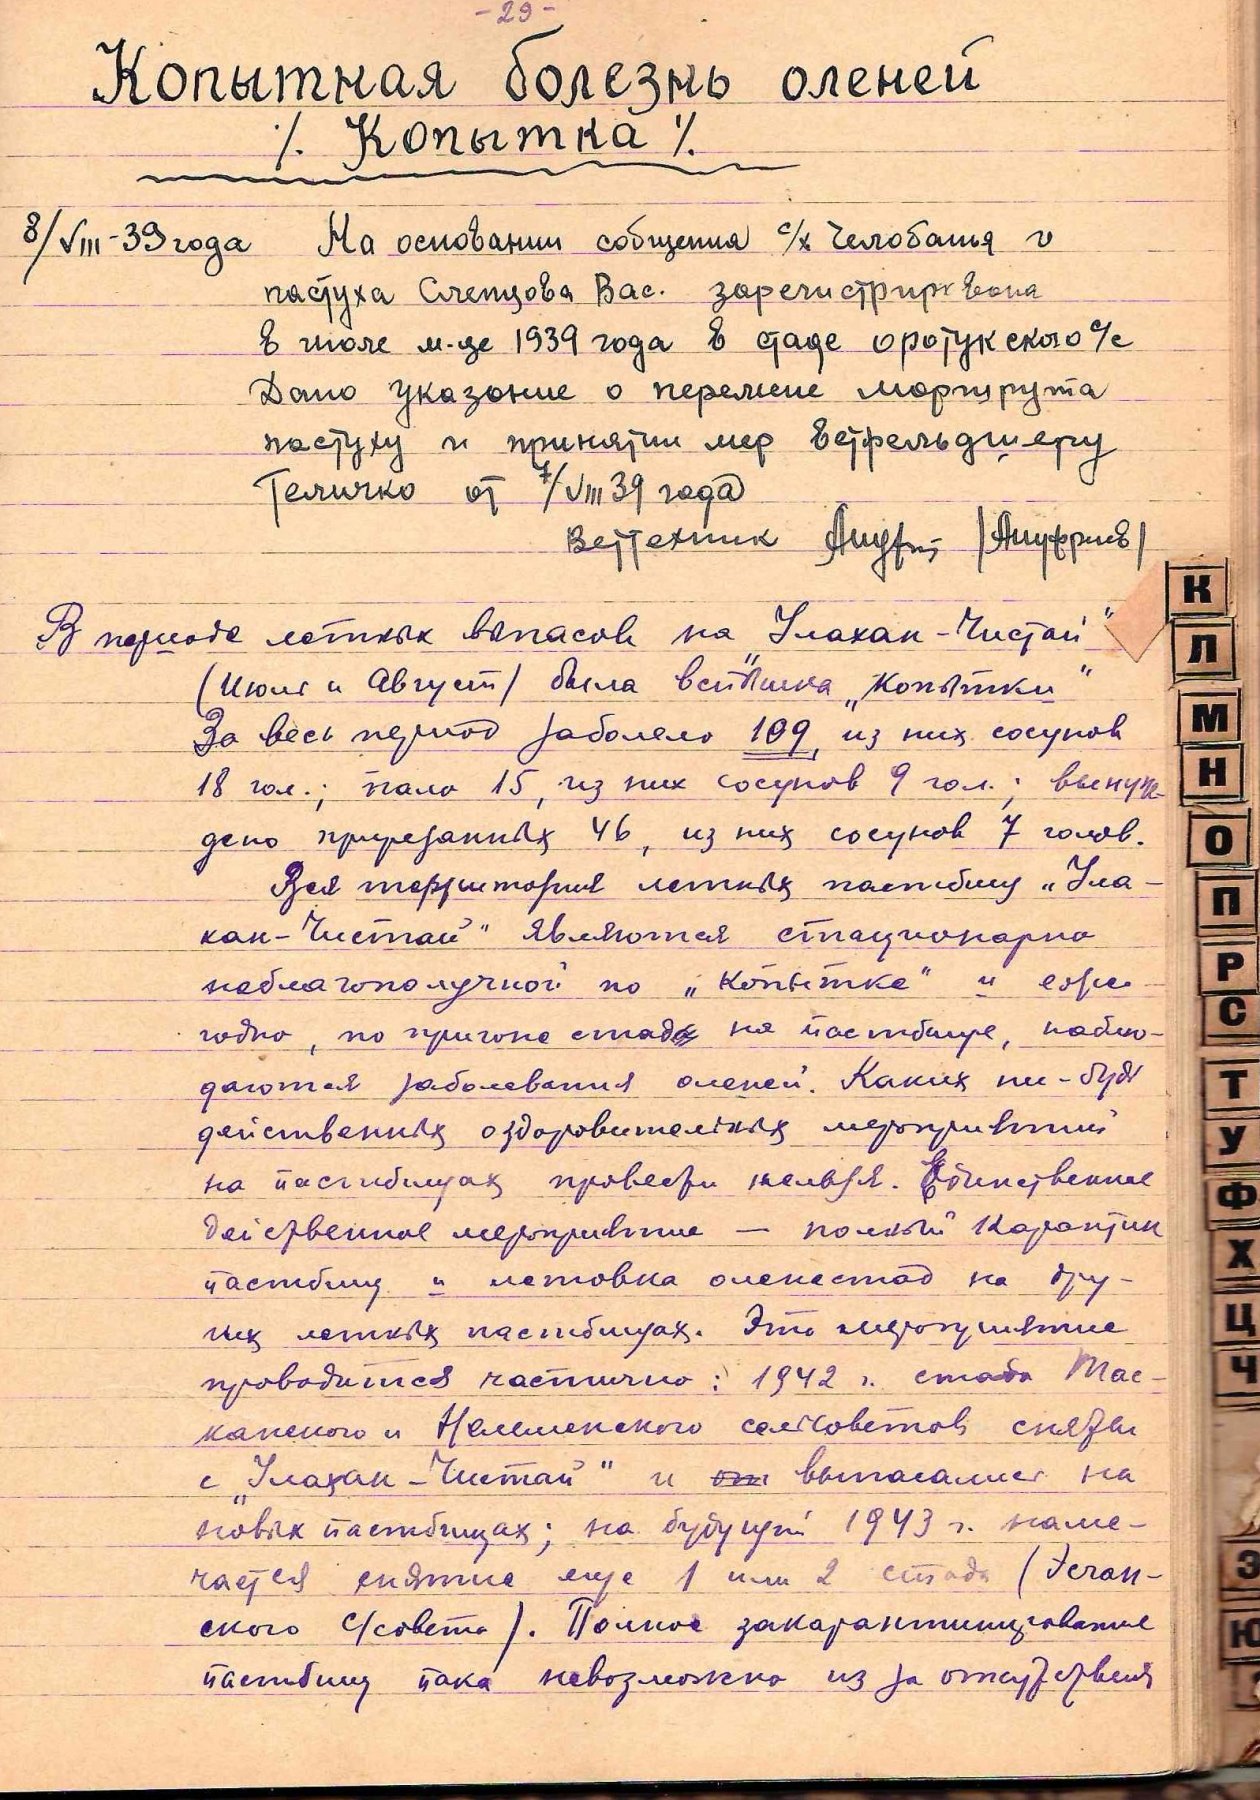 - 29 -
Копытная болезнь оленей
/. Копытка /.
8/VIII-39 года На основании собщения с/х Челобанья и
пастуха Слепцова Вас. зарегистрирована
в июле м-це 1939 года в стаде оротукского с/с
Дано указание о перемене маршрута
пастуху и принятии мер ветфельдшеру
Геличко от 7/VIII 39 года
Веттехник /Ануфриев/
В периоде летних выпасов на „Улахан-Чистай"
(Июль и Август) была вспышка „Копытки"
За весь период заболело 109, из них сосунов
18 гол.; пало 15, из них сосунов 9 гол.; вынуж-
дено прирезанных 46, из них сосунов 7 голов.
Вся территория летних пастбищ „Ула-
хан-Чистай" являются стационарно
неблагополучной по „Копытке" и еже-
годно, по пригоне стад на пастбище, наблю-
даются заболевания оленей. Каких ни-будь
действенных оздоровительных мероприятий
на пастбищах провести нельзя. Единственное
действенное мероприятие — полный карантин
пастбищ и летовка оленестад на дру-
гих летних пастбищах. Это мероприятие
проводится частично: 1942 г. стада Тас-
канского и Нелеменского сельсоветов сняты
с „Улахан-Чистай" и выпасались на
новых пастбищах; на будущий 1943 г. наме-
чается снятие еще 1 или 2 стада (Эсчан-
ского с/совета). Полное закарантинирование
пастбищ пока невозможно из за отсутствия
К
Л
М
Н
О
П
Р
С
Т
У
Ф
Х
Ц
Ч
Э
Ю